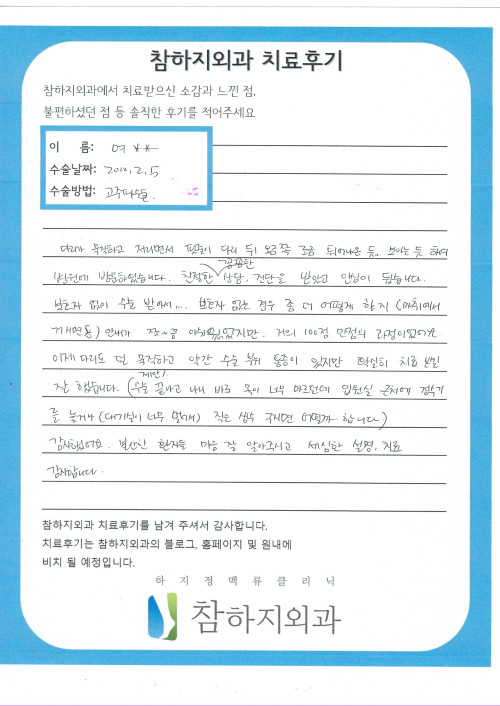 참하지외과 치료후기
참하지외과에서 치료받으신 소감과 느낀 점,
불편하셨던 점 등 솔직한 후기를 적어주세요
이 름: 여 **
수술날짜: 2020.2.5
수술방법: 고주파수술
다리가 묵직하고 저리면서 핏줄이 다리 뒤 왼쪽 조금 튀어나온 듯, 보이는 듯 하여
꼼꼼한
병원에 방문하였습니다. 친절한 상담, 진단을 받았고 안심이 됐습니다.
보호자 없이 수술 받아서... 보호자 없는 경우 좀 더 어떻게 할지 (마취에서
깨면 등) 안내가 아쉬웠지만. 거의 100점 만점의 과정이었어요.
이제 다리도 덜 묵직하고 약간 수술 부위 통증이 있지만 확실히 치료
제안!
잘 합니다. (수술 끝나고 나니 바로 목이 너무 마르던데 입원실 근처에 정수기
를 놓거나 (대기실이 너무 멀어서) 작은 생수 주시면 어떨까 합니다)
감사했어요. 불안한 환자들 마음 잘 알아주시고 세심한 설명, 치료
감사합니다.
참하지외과 치료후기를 남겨 주셔서 감사합니다.
치료후기는 참하지외과의 블로그, 홈페이지 및 원내에
비치 될 예정입니다.
하지정맥류클리닉
참하지외과